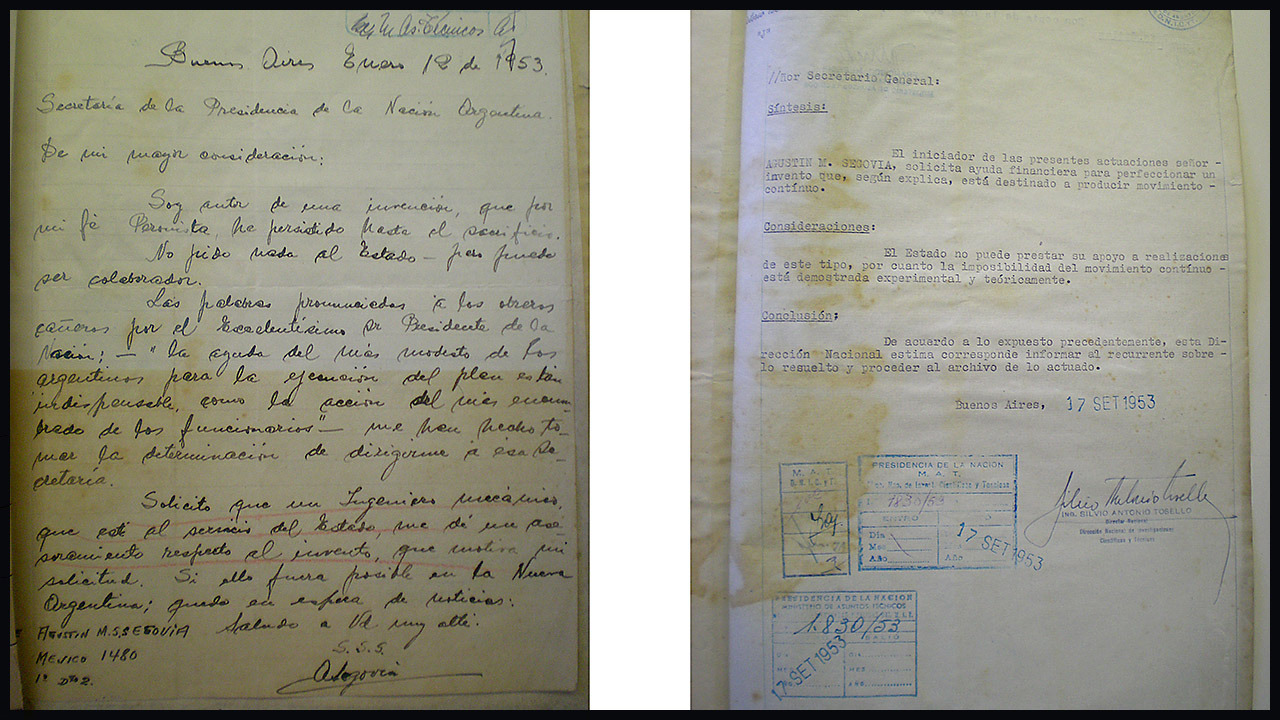 Buenos Aires Enero 12 de 1953.
Secretaría de la Presidencia de la Nación Argentina.
De mi mayor consideración:
Soy autor de una invención, que por
mi fé Peronista, he persistido hasta el sacrificio.
No pido nada al Estado — pero puedo
ser colaborador.
Las palabras pronunciadas a los obreros
cañeros por el Excelentísimo Sr Presidente de la
Nación; — "la ayuda del más modesto de los
argentinos para la ejecución del plan es tan
indispensable, como la acción del más encum-
brado de los funcionarios" — me han hecho to-
mar la determinación de dirigirme a esa Se-
cretaría.
Solicito que un Ingeniero mecánico,
que esté al servicio del Estado me dé un ase-
soramiento respecto al invento, que motiva mi
solicitud. Si ello fuera posible en la Nueva
Argentina; quedo en espera de noticias.
Saludo a Vd muy atte.
AGUSTIN M.S.SEGOVIA
MEXICO 1480
1º Dto 2.
S.S.S.
ASegovia
//ñor Secretario General:
Síntesis:
El iniciador de las presentes actuaciones señor -
AGUSTIN M. SEGOVIA, solicita ayuda financiera para perfeccionar un
invento que, según explica, está destinado a producir movimiento -
contínuo.
Consideraciones:
El Estado no puede prestar su apoyo a realizaciones
de este tipo, por cuanto la imposibilidad del movimiento contínuo -
está demostrada experimental y teóricamente.
Conclusión;
De acuerdo a lo expuesto precedentemente, esta Di-
rección Nacional estima corresponde informar al recurrente sobre-
lo resuelto y proceder al archivo de lo actuado.
Buenos Aires, 17 SET 1953
M. A. T.
D.N.I.C. y T.
PRESIDENCIA DE LA NACION
M. A. T.
Dir. Nac. de Invest. Científicas y Técnicas
1830/53
ENTRO
Día
Mes
Año
Año
17 SET 1953
ING. SILVIO ANTONIO TOSELLO
Director Nacional
Dirección Nacional de Investigaciones
Científicas y Técnicas
PRESIDENCIA DE LA NACION
MINISTERIO DE ASUNTOS TECNICOS
1.830/53
SALIO
DIA
MES
AÑO
17 SET 1953